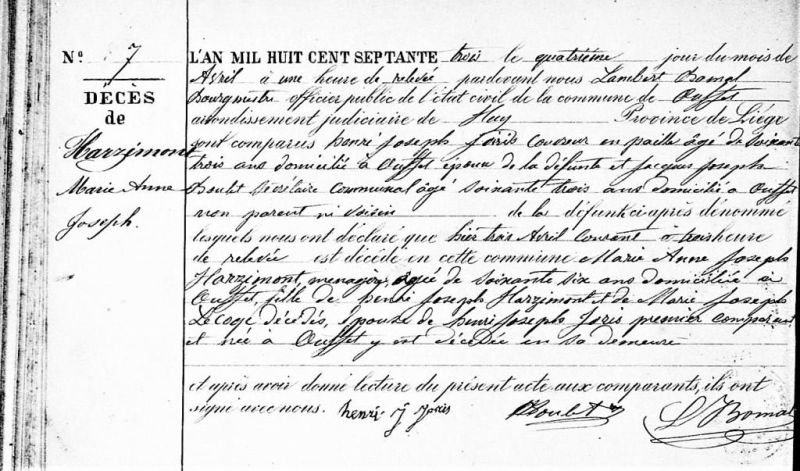 N.º 7
DÉCÈS
de
Harzimont
Marie Anne
Joseph.
L'AN MIL HUIT CENT SEPTANTE trois le quatrième jour du mois de
Avril à une heure de relevée pardevant nous Lambert Bomal
Bourgmestre officier public de l'état civil de la commune de Ouffet
arrondissement judiciaire de Huy Province de Liége
sont comparus henri Joseph Joris Couvreur en paille âgé de soixante
trois ans domicilié à Ouffet époux de la défunte et Jacques Joseph
Secrétaire Communal âgé soixante trois ans domicilié à Ouffet
non parent ni voisin de la défunte ci après dénommé
lesquels nous ont déclaré que hier trois Avril courant à trois heure
de relevée est décédé en cette commune Marie Anne Joseph
Harzimont, menagère, agée de soixante six ans domiciliée à
Ouffet, fille de henri Joseph Harzimont & de Marie Joseph
décédés, épouse de henri Joseph Joris premier comparant
et née à Ouffet y est décédée en sa demeure
et après avoir donné lecture du présent acte aux comparants, ils ont
signé avec nous. henri J Joris L Bomal